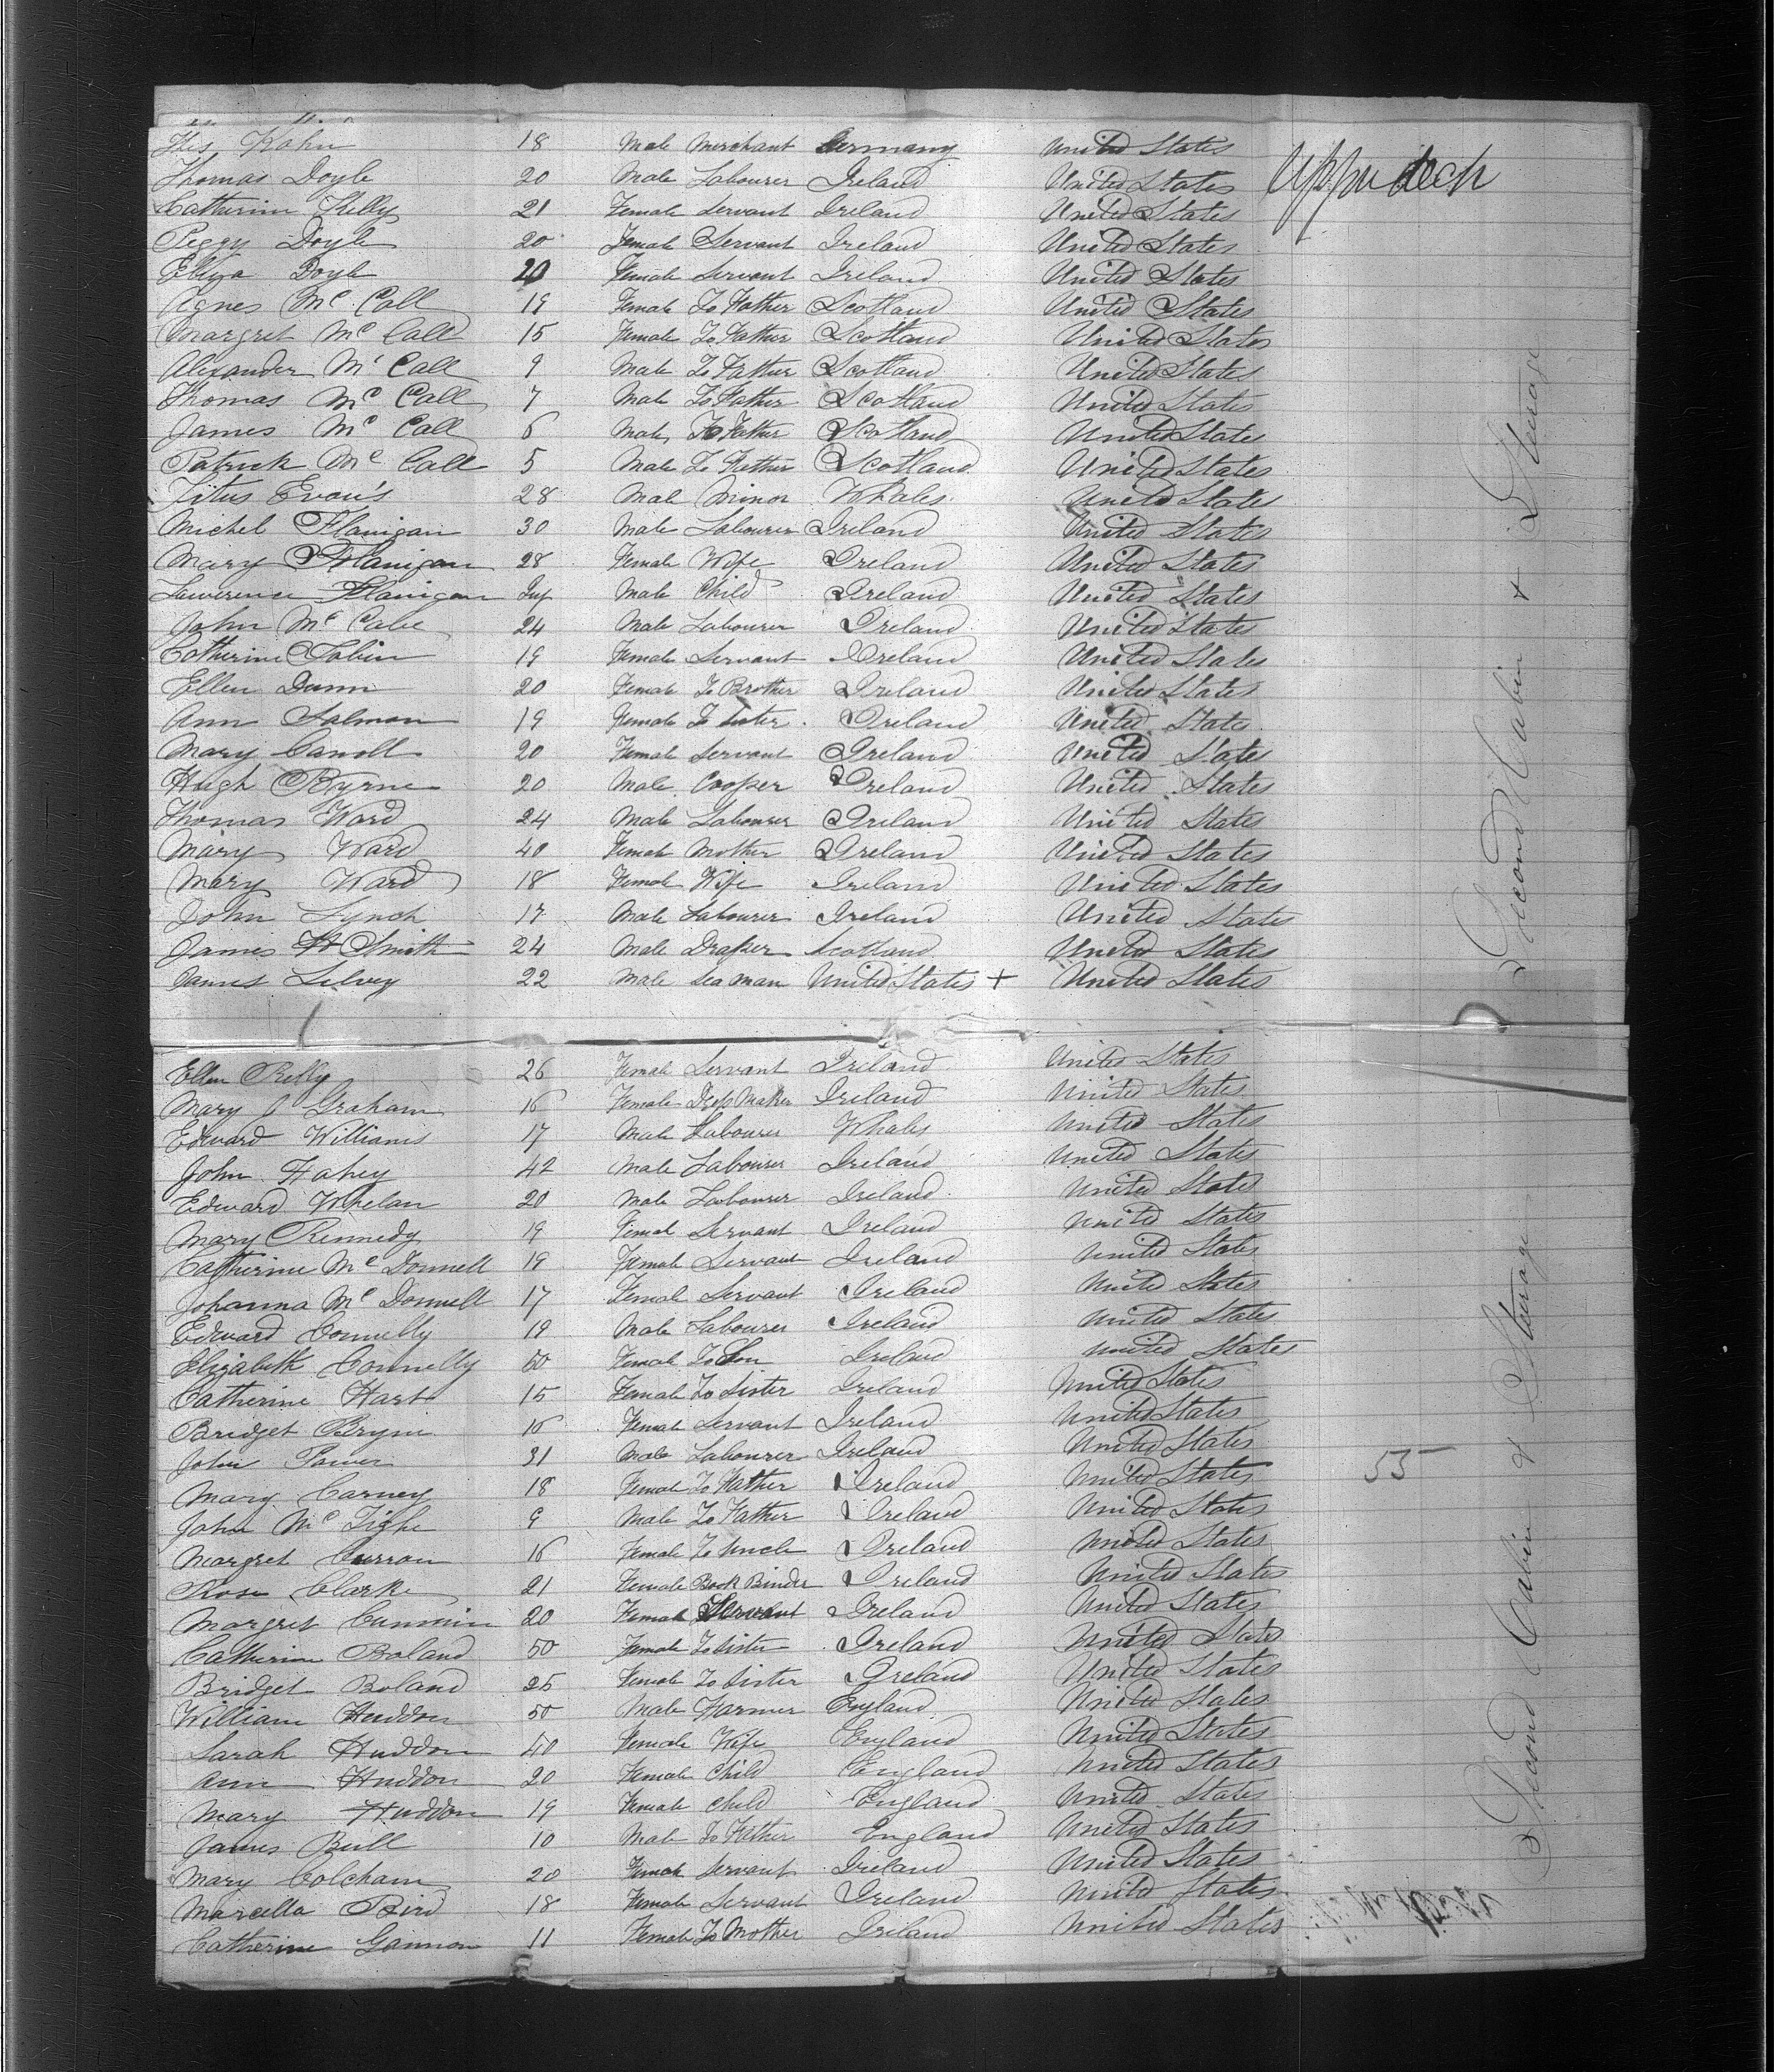 Kahn 18 Male Merchant Germany United States
Thomas Doyle 20 Male Labourer Ireland United States Upper deck
Catherine Kelly 21 Female Servant Ireland United States
Peggy Doyle 20 Female Servant Ireland United States
Eliza Doyle 20 Female Servant Ireland United States
Agnes Mc Call 19 Female To Father Scotland United States
Margret Mc Call 15 Female To Father Scotland United States
Alexander Mc Call 9 Male To Father Scotland United States
Thomas Mc Call 7 Male To Father Scotland United States
James Mc Call 6 Male To Father Scotland United States
Patrick Mc Call 5 Male To Father Scotland United States
Titus Evan's 28 Male Minor Whales United States
Michel Flanigan 30 Male Labourer Ireland United States
Mary Flanigan 28 Female Wife Ireland United States
Lawerence Flanigan Inf Male Child Ireland United States
John Mc Cabe 24 Male Labourer Ireland United States
Catherine Tobin 19 Female Servant Ireland United States
Ellen Dunn 20 Female To Brother Ireland United States
Ann Salmon 19 Female To Sister Ireland United States
Mary Carroll 20 Female Servant Ireland United States
Hugh Byrne 20 Male Cooper Ireland United States
Thomas Ward 24 Male Labourer Ireland United States
Mary Ward 40 Female Mother Ireland United States
Mary Ward 18 Female Wife Ireland United States
John Lynch 17 Male Labourer Ireland United States
James H Smith 24 Male Draper Scotland United States
James Selvey 22 Male Seaman United States + United States
Second Cabin & Steerage
Ellen Reilly 26 Female Servant Ireland United States
Mary J Graham 16 Female Dress Maker Ireland United States
Edward Williams 17 Male Labourer Whales United States
John Fahey 42 Male Labourer Ireland United States
Edward Whelan 20 Male Labourer Ireland United States
Mary Kennedy 19 Female Servant Ireland United States
Catherine Mc Donnell 19 Female Servant Ireland United States
Johanna Mc Donnell 17 Female Servant Ireland United States
Edward Connelly 19 Male Labourer Ireland United States
Elizabeth Connelly 60 Female To Son Ireland United States
Catherine Hart 15 Female To Sister Ireland United States
Bridget Bryne 16 Female Servant Ireland United States
John Power 31 Male Labourer Ireland United States
Mary Carney 18 Female To Father Ireland United States 55
John Mc Tighe 9 Male To Father Ireland United States
Margret Curran 16 Female To Uncle Ireland United States
Rose Clarke 21 Female Book Binder Ireland United States
Margret Cummin 20 Female Servant Ireland United States
Catherine Boland 50 Female To Sister Ireland United States
Bridget Boland 25 Female To Sister Ireland United States
William Huddon 50 Male Farmer England United States
Sarah Huddon 40 Female Wife England United States
Ann Huddon 20 Female Child England United States
Mary Huddon 19 Female Child England United States
James Bull 10 Male To Father England United States
Mary Colcham 20 Female Servant Ireland United States
Marcella Bird 18 Female Servant Ireland United States
Catherine Gannon 11 Female To Mother Ireland United States
Second Cabin & Steerage